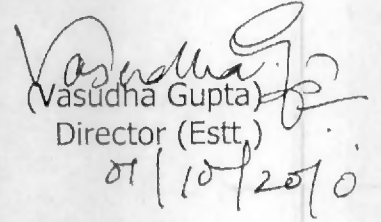 Vasudha Gupta
(Vasudha Gupta)
Director (Estt.)
01/10/2010